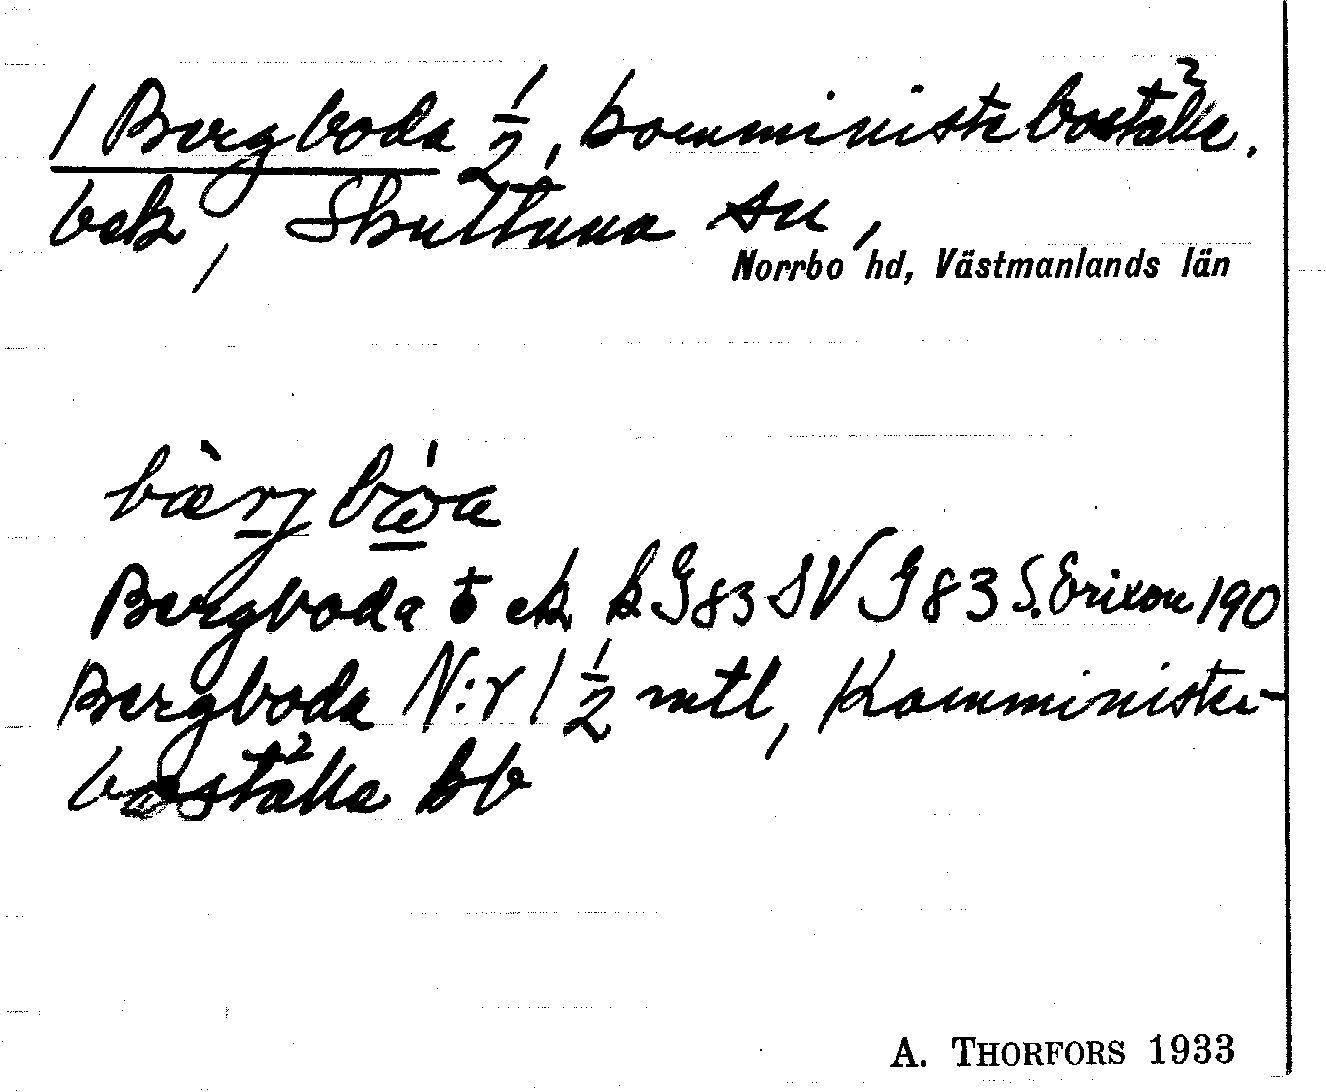 1 Bergboda 1/2, komministerboställe.
bek, Skultuna sn,
Norrbo hd, Västmanlands län
bærjbωa
Bergboda t ek k G 83 SV G 83 S. Erixon 190
Bergboda N:r 1 1/2 mtl, Komminister-
boställe bb
A. THORFORS 1933